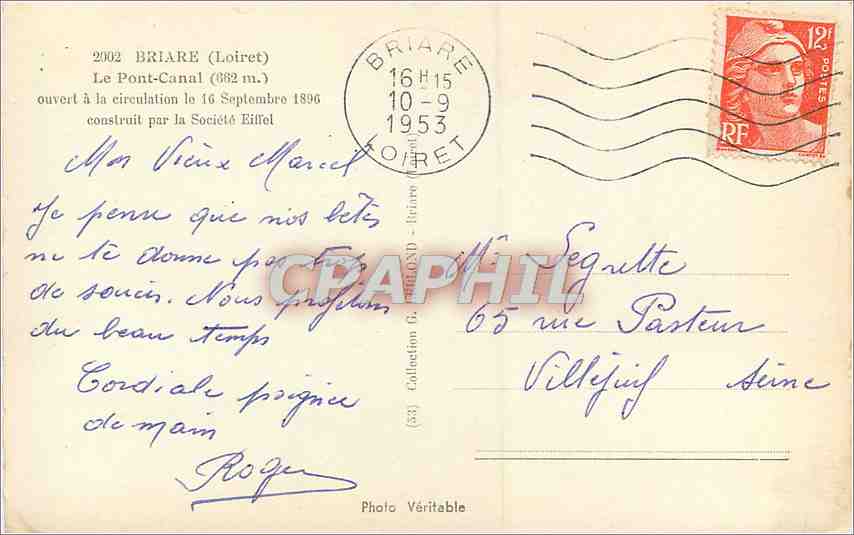 2002 BRIARE (Loiret)
Le Pont-Canal (662 m.)
ouvert à la circulation le 16 Septembre 1896
construit par la Société Eiffel
BRIARE
16H15
10-9
1953
LOIRET
12F
POSTES
RF
Mon Vieux Marcel
Je pense que nos bêtes
ne te donne pas trop
de soucis. Nous profitons
du beau temps
Cordiale poignée
de main
Roger
(53) Collection G. - Briare (Loiret)
CPAPHIL
Mr Segrette
65 rue Pasteur
Villejuif Seine
Photo Véritable